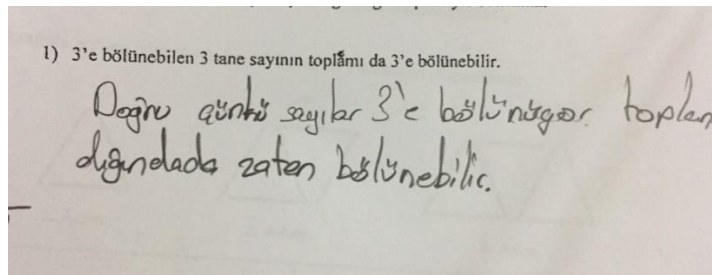 1) 3'e bölünebilen 3 tane sayının toplamı da 3'e bölünebilir.
Doğru çünkü sayılar 3'e bölünüyor. toplan
dığındada zaten bölünebilir.